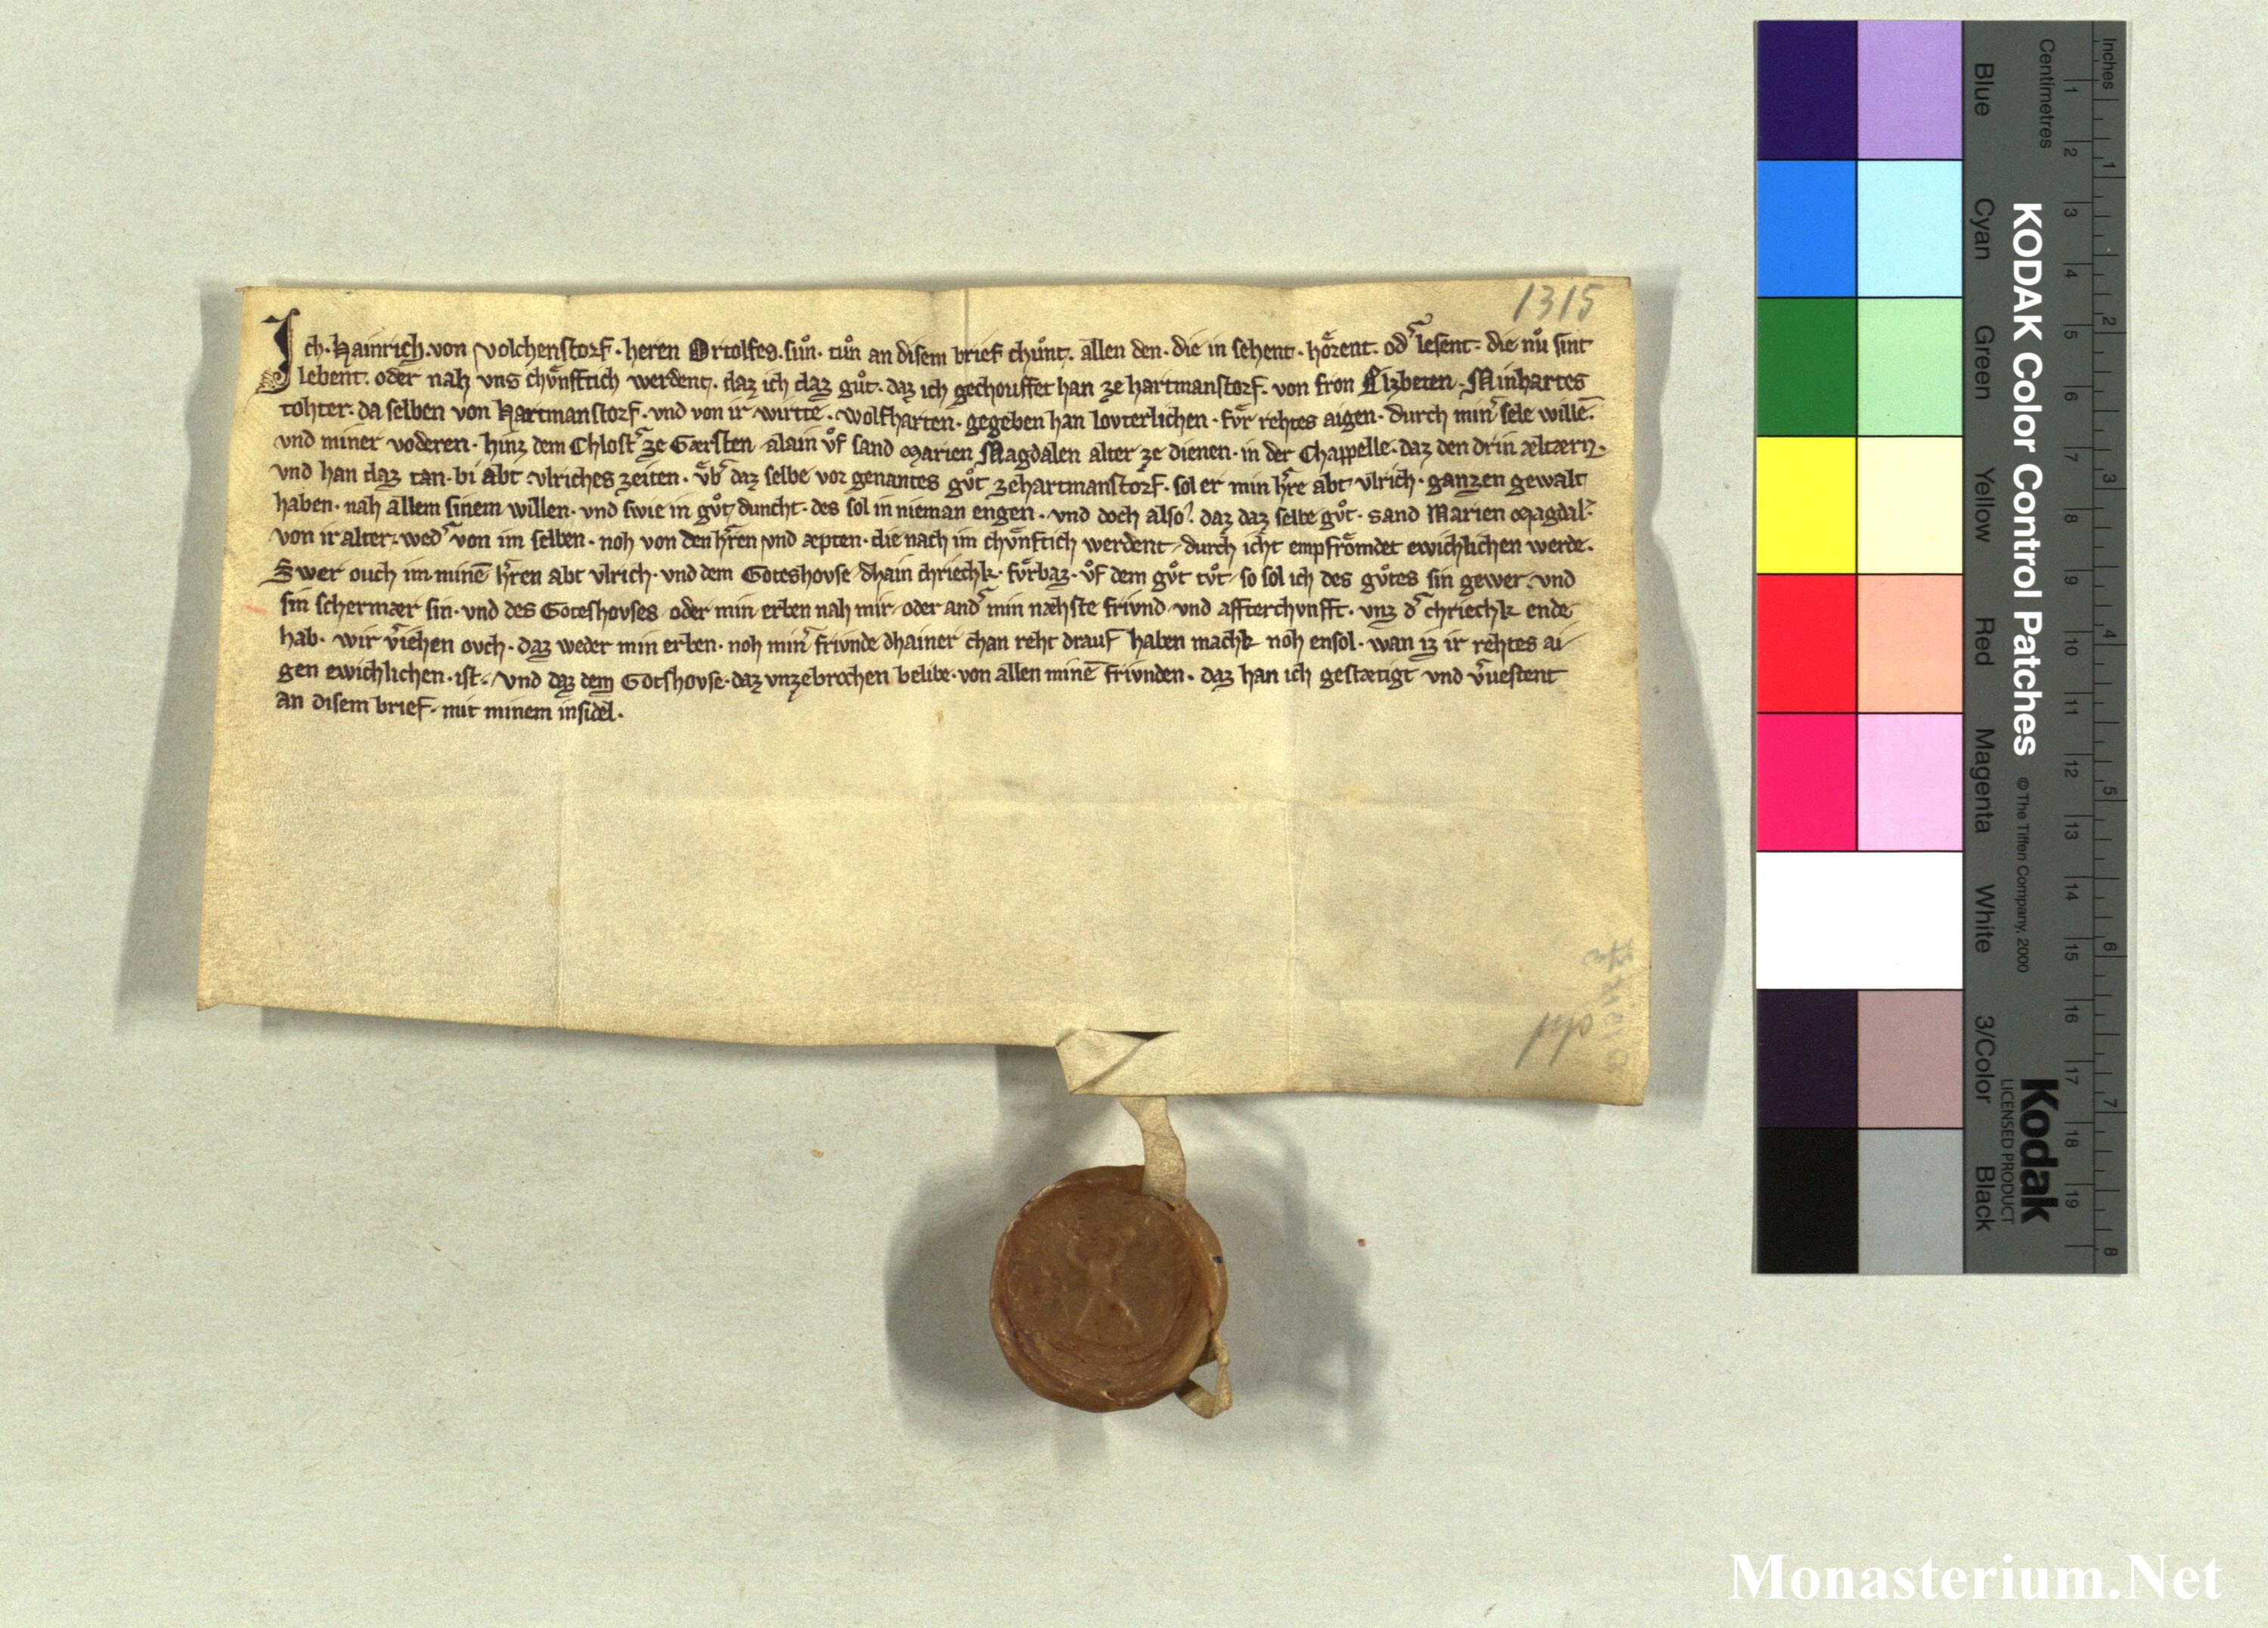 1315
Ich · Hainrich · von Volchenstorf · heren Ortolfes · sůn · tůn an disem brief chůnt · allen den · die in sehent · hoͤrent · od͛ lesent · die nů sint
lebent · oder nah vns chvͤnfftich werdent · daz ich daz gůt · daz ich gechouffet han ze hartmanstorf · von fron Elzbeten · Minhartes
tohter · da selben von Hartmanstorf · vnd von ir wirtte · wolfharten · gegeben han lovterlichen · fvͤr rehtes aigen · durch min͛ sele wille̅ ·
vnd miner voderen · hinz dem Chlost͛ ze Gærsten alain vͦf sand Marien Magdalen alter ze dienen · in der Chappelle · daz den drin æltærn ·
vnd han daz tan · bi abt vlriches zeiten · vͤb͛ daz selbe vor genantes gvͦt ze hartmanstorf · sol er min h͛re abt vlrich · ganzen gewalt
haben · nah allem sinem willen · vnd swie in gvͦt duncht · des sol in nieman engen · vnd doch also · daz daz selbe gvͦt · sand Marien Magdal͛
von ir alter · wed͛ von im selben · noh von den h͛ren vnd æpten · die nach im chvͤnftich werdent durch icht empfroͤmdet ewichlichen werde ·
Swer ouch im mine̅ h͛ren abt vlrich · vnd dem Goteshovse dhain chriechk · fvͤrbaz · vͦf dem gvͦt tvͦt so sol ich des gvͦtes sin gewer · vnd
sin schermær sin · vnd des Goteshovses oder min erben nah mir · oder and͛ min næhste frivnd vnd affterchvnfft · vnz d͛ chriechk ende
hab · wir v͛iehen ovch · daz weder min erben · noh min͛ frivnde dhainer chan reht drauf haben machk noh ensol · wan iz ir rehtes ai
gen ewichlichen · ist · vnd daz dem Gotshovse · daz vnzebrochen belibe · von allen mine̅ frivnden · daz han ich gestætigt vnd v͛uestent
an disem brief · mit minem insidel ·
KODAK Color Control Patches © The Tiffen Company, 2000
Kodak
LICENSED PRODUCT
Inches
1 2 3 4 5 6 7 8
Centimetres
1 2 3 4 5 6 7 8 9 10 11 12 13 14 15 16 17 18 19
Blue
Cyan
Green
Yellow
Red
Magenta
White
3/Color
Black
Monasterium.Net